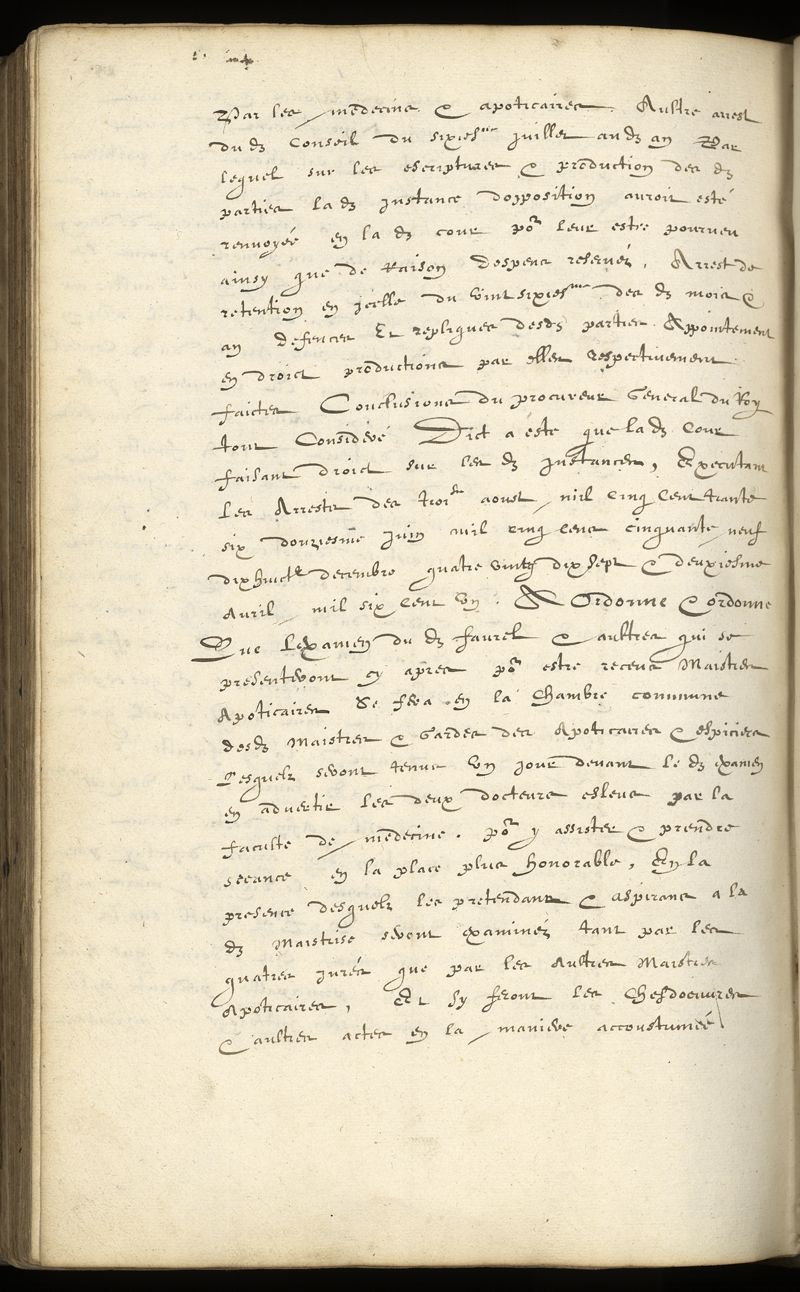 Par les medecins & apoticaires. Aultre arrest
dud. Conseil du sixiesme juillet aud. an Par
lequel sur les escriptures & production des d.
parties lad. instance dopposition auroit esté
renvoyée en lad. cour por leur estre pourveu
ainsy que de Raison despens reservez, Arrest de
retention en icelle du vint sixiesme des d. mois &
an defences Et repliques desd. parties Appointement
en droict productions par elles respectivement
faictes Conclusions du procureur General du Roy
tout Considéré Dict a esté que lad. Cour
faisant droict sur les d. instances, Executant
Les Arrests des troisme aoust mil cinq cent trante
six douziesme juin mil cinq cens cinquante neuf
dix huicte decembre quatre vingtz dix sept & deuxiesme
Avril mil six cent un. A Ordonné & ordonne
Que Lexamen du d. faurel & aultres qui se
presenteront cy apres por estre receus Maistres
Apoticaires Se fera en la Chambre commune
desd. Maistres & Gardes des Apoticaires & espiciers
Lesquelz seront tenus un jour devant le d. examen
en advertir les deux docteurs esleus par la
faculté de medecine. por y assister & prendre
seeance en la place plus honorable, En la
presence desquelz les pretendans & aspirans a la
d. Maistrise seront examinéz tant par les
quatres jurés que par les Aultres Maistres
Apoticaires, Et sy feront les Chefdoeuvres
& aultres actes en la maniere accoustumée